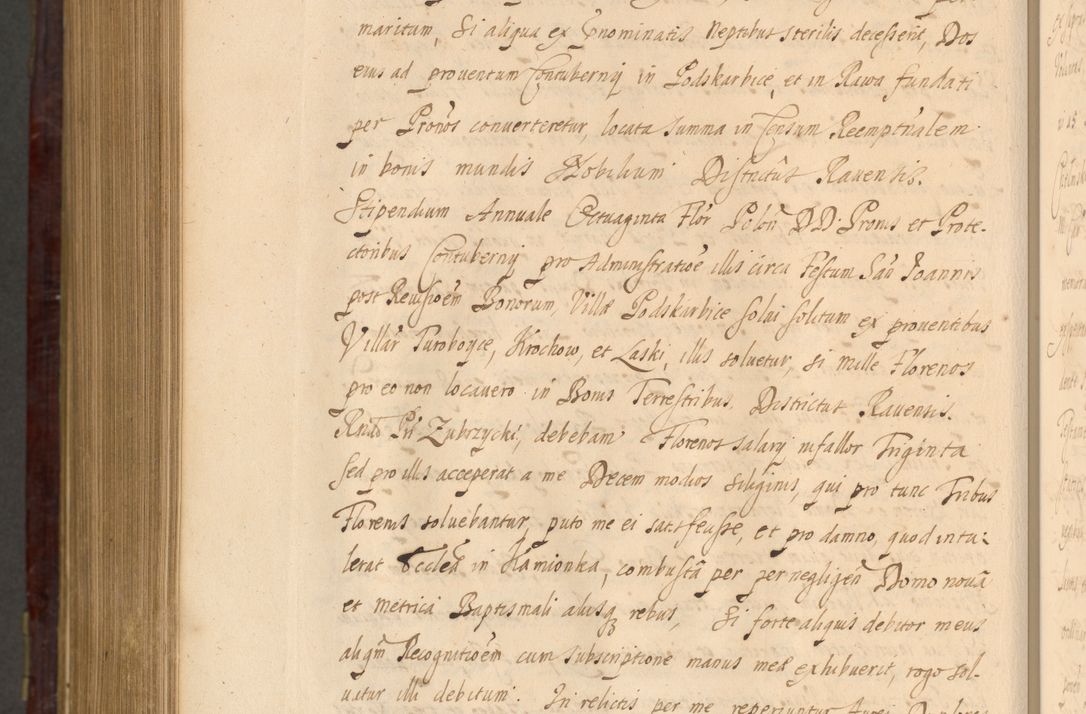 maritum, Si aliqua ex Pnominatis Neptibus sterilis decesserit, Dos
eius ad prouentum Contubernij in Podskarbice, et in Rawa fundati
per Pronos conuerteretur, locata Summa in Censum Reemptualem
in bonis mundis Nobilium Districtus Rauensis.
Stipendium Annuale Octuaginta Flor Polon DD. Pronis et Prote-
ctoribus Contubernij pro Administratioe illis circa Festum San Joannis
post Reuisioem Bonorum, Villæ Podskarbice solui solitum ex prouentibus
Villar Turoboyce, Krochow, et Laski, illis soluetur, Si Mille Florenos
pro eo non locauero in Bonis Terrestribus Districtus Rauensis.
Rndo Pri Zubrzycki, debebam Florenos salarij nifallor Triginta
sed pro illis acceperat a me Decem modios Siliginis, qui pro tunc Tribus
Florenis soluebantur, puto me ei satisfecisse, et pro damno, quod intu-
lerat Eccleæ in Kamionka, combusta per per negligen Domo nouâ
et Metrica Baptismali alijsq rebus, Si forte aliquis debitor meus
aliqm Recognitioem cum Subscriptione manus meæ exhibuerit, rogo sol-
uatur illi debitum. In relictis per me reperiuntur Aurei